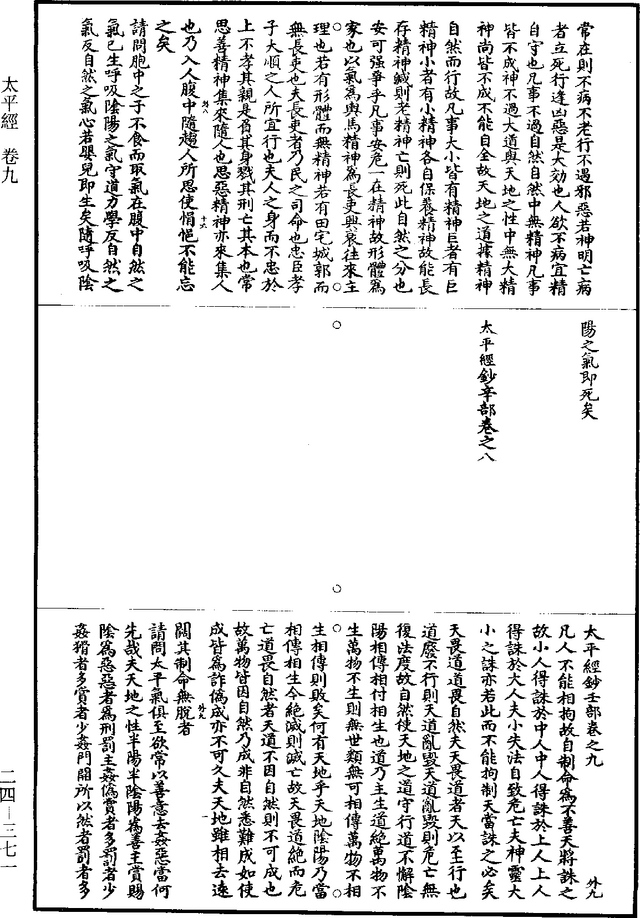 太平經　卷九
常在則不病不老行不遇邪惡若神明亡病
者立死行逢凶惡是大効也人欲不病宜精
自守也凡事不過自然自然中無精神凡事
皆不成神不過大道與天地之性中無大精
神尚皆不成不能自全故天地之道據精神
自然而行故凡事大小皆有精神巨者有巨
精神小者有小精神各自保養精神故能長
存精神緘則老精神亡則死此自然之分也
安可强爭乎凡事安危一在精神故形體為
家也以氣為輿馬精神為長吏興衰往來主
理也若有形體而無精神若有田宅城郭而
無長吏也夫長吏者乃民之司命也忠臣孝
子大順之人所宜行也夫人之身而不忠於
上不孝其親是負其身戮其刑亡其本也常
思善精神集來隨人也思惡精神亦來集人
也乃入人腹中隨趨人所思使悁悒不能忘
之矣
外八
十六
請問胞中之子不食而取氣在腹中自然之
氣已生呼吸陰陽之氣守道力學反自然之
氣反自然之氣心若嬰兒即生矣隨呼吸陰
陽之氣即死矣
太平經鈔辛部卷之八
太平經鈔壬部卷之九
外九
凡人不能相拘故自制命為不善天將誅之
故小人得誅於中人中人得誅於上人上人
得誅於大人夫小失法自致危亡夫神靈大
小之誅亦若此而不能拘制天當誅之必矣
天畏道道畏自然夫天畏道者天以至行也
道廢不行則天道亂毀天道亂毀則危亡無
復法度故自然使天地之道守行道不懈陰
陽相傳相付相生也道乃主生道絕萬物不
生萬物不生則無世類無可相傳萬物不相
生相傳則敗矣何有天地乎天地陰陽乃當
相傳相生今絕滅則滅亡故天畏道絕而危
亡道畏自然者天道不因自然則不可成也
故萬物皆因自然乃成非自然悉難成如使
成皆為詐偽成亦不可久夫天地雖相去遠
闊其制命無脫者
外九
一
請問太平氣俱至欲常以善意去姦惡當何
先哉夫天地之性半陽半陰陽為善主賞賜
陰為惡惡者為刑罰主姦偽賞者多罰者少
姦猾者多賞者少姦門開所以然者罰者多
二四—三七一